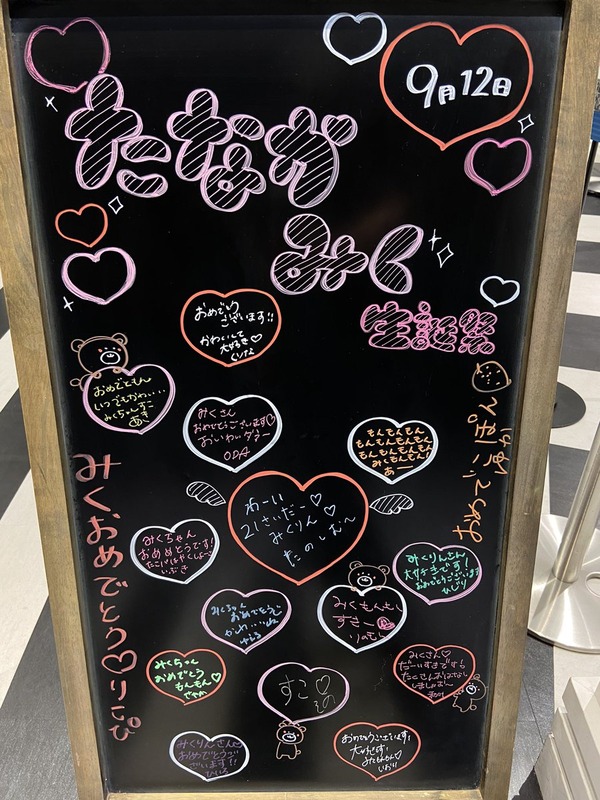 9月12日
たなか
みく
生誕祭
おめでとう
ございます!!
かわいくて
大好き♡
おめでともん
いつでもかわいい...
あき
みくさん
おめでとうございます♡
おいわいダー
ODA
もんもんもん
もんもんもんもん
もんもんもんもん
みくもんもん
あー
おめでこぽん
みくおめでとう♡りこぴ
わーい
21さいだー♡
みくりん♡
たのしむ〜
みくちゃん
おめでとうです!
いぶき
みくりんさん
大好きです!
おめでとうございます
ひじり
みくちゃん
おめでとう
かわ...いね
ゆうる
みくもんもん
すきー
りのむら
みくちゃ
おめでとう
もんもん♡
さやか
すこ♡
るの
みくさん♡
だーいすきです!
たくさんおはなし
しましょおー
みくりんさん♡
おめでとうご
ざいます!!
ひいろ
おめでとうございます!
大好きです!
しおり